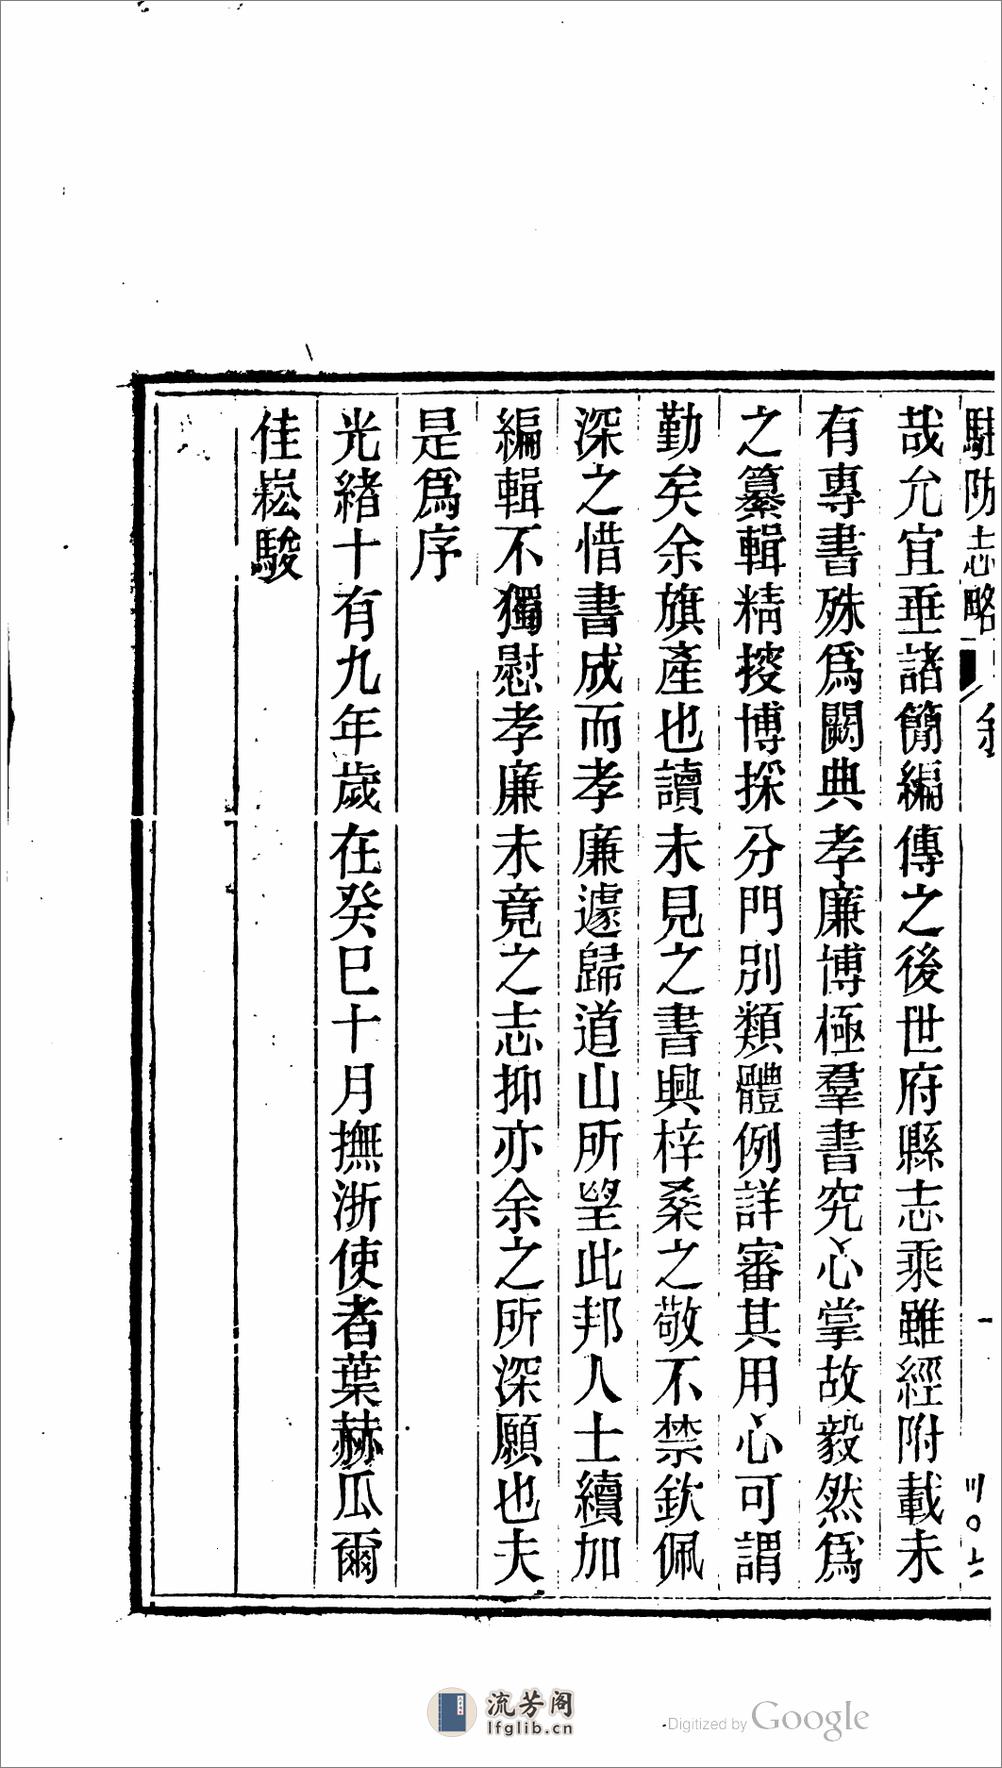 駐防志略
一
哉允宜垂諸簡編傳之後世府縣志乘雖經附載未
有專書殊爲闕典孝廉博極羣書究心掌故毅然爲
之纂輯精搜博採分門別類體例詳審其用心可謂
勤矣余旗產也讀未見之書興梓桑之敬不禁欽佩
深之惜書成而孝廉遽歸道山所望此邦人士續加
編輯不獨慰孝廉未竟之志抑亦余之所深願也夫
是爲序
光緒十有九年歲在癸巳十月撫浙使者葉赫瓜爾
佳崧駿
流芳阁
lfglib.cn
Digitized by Google